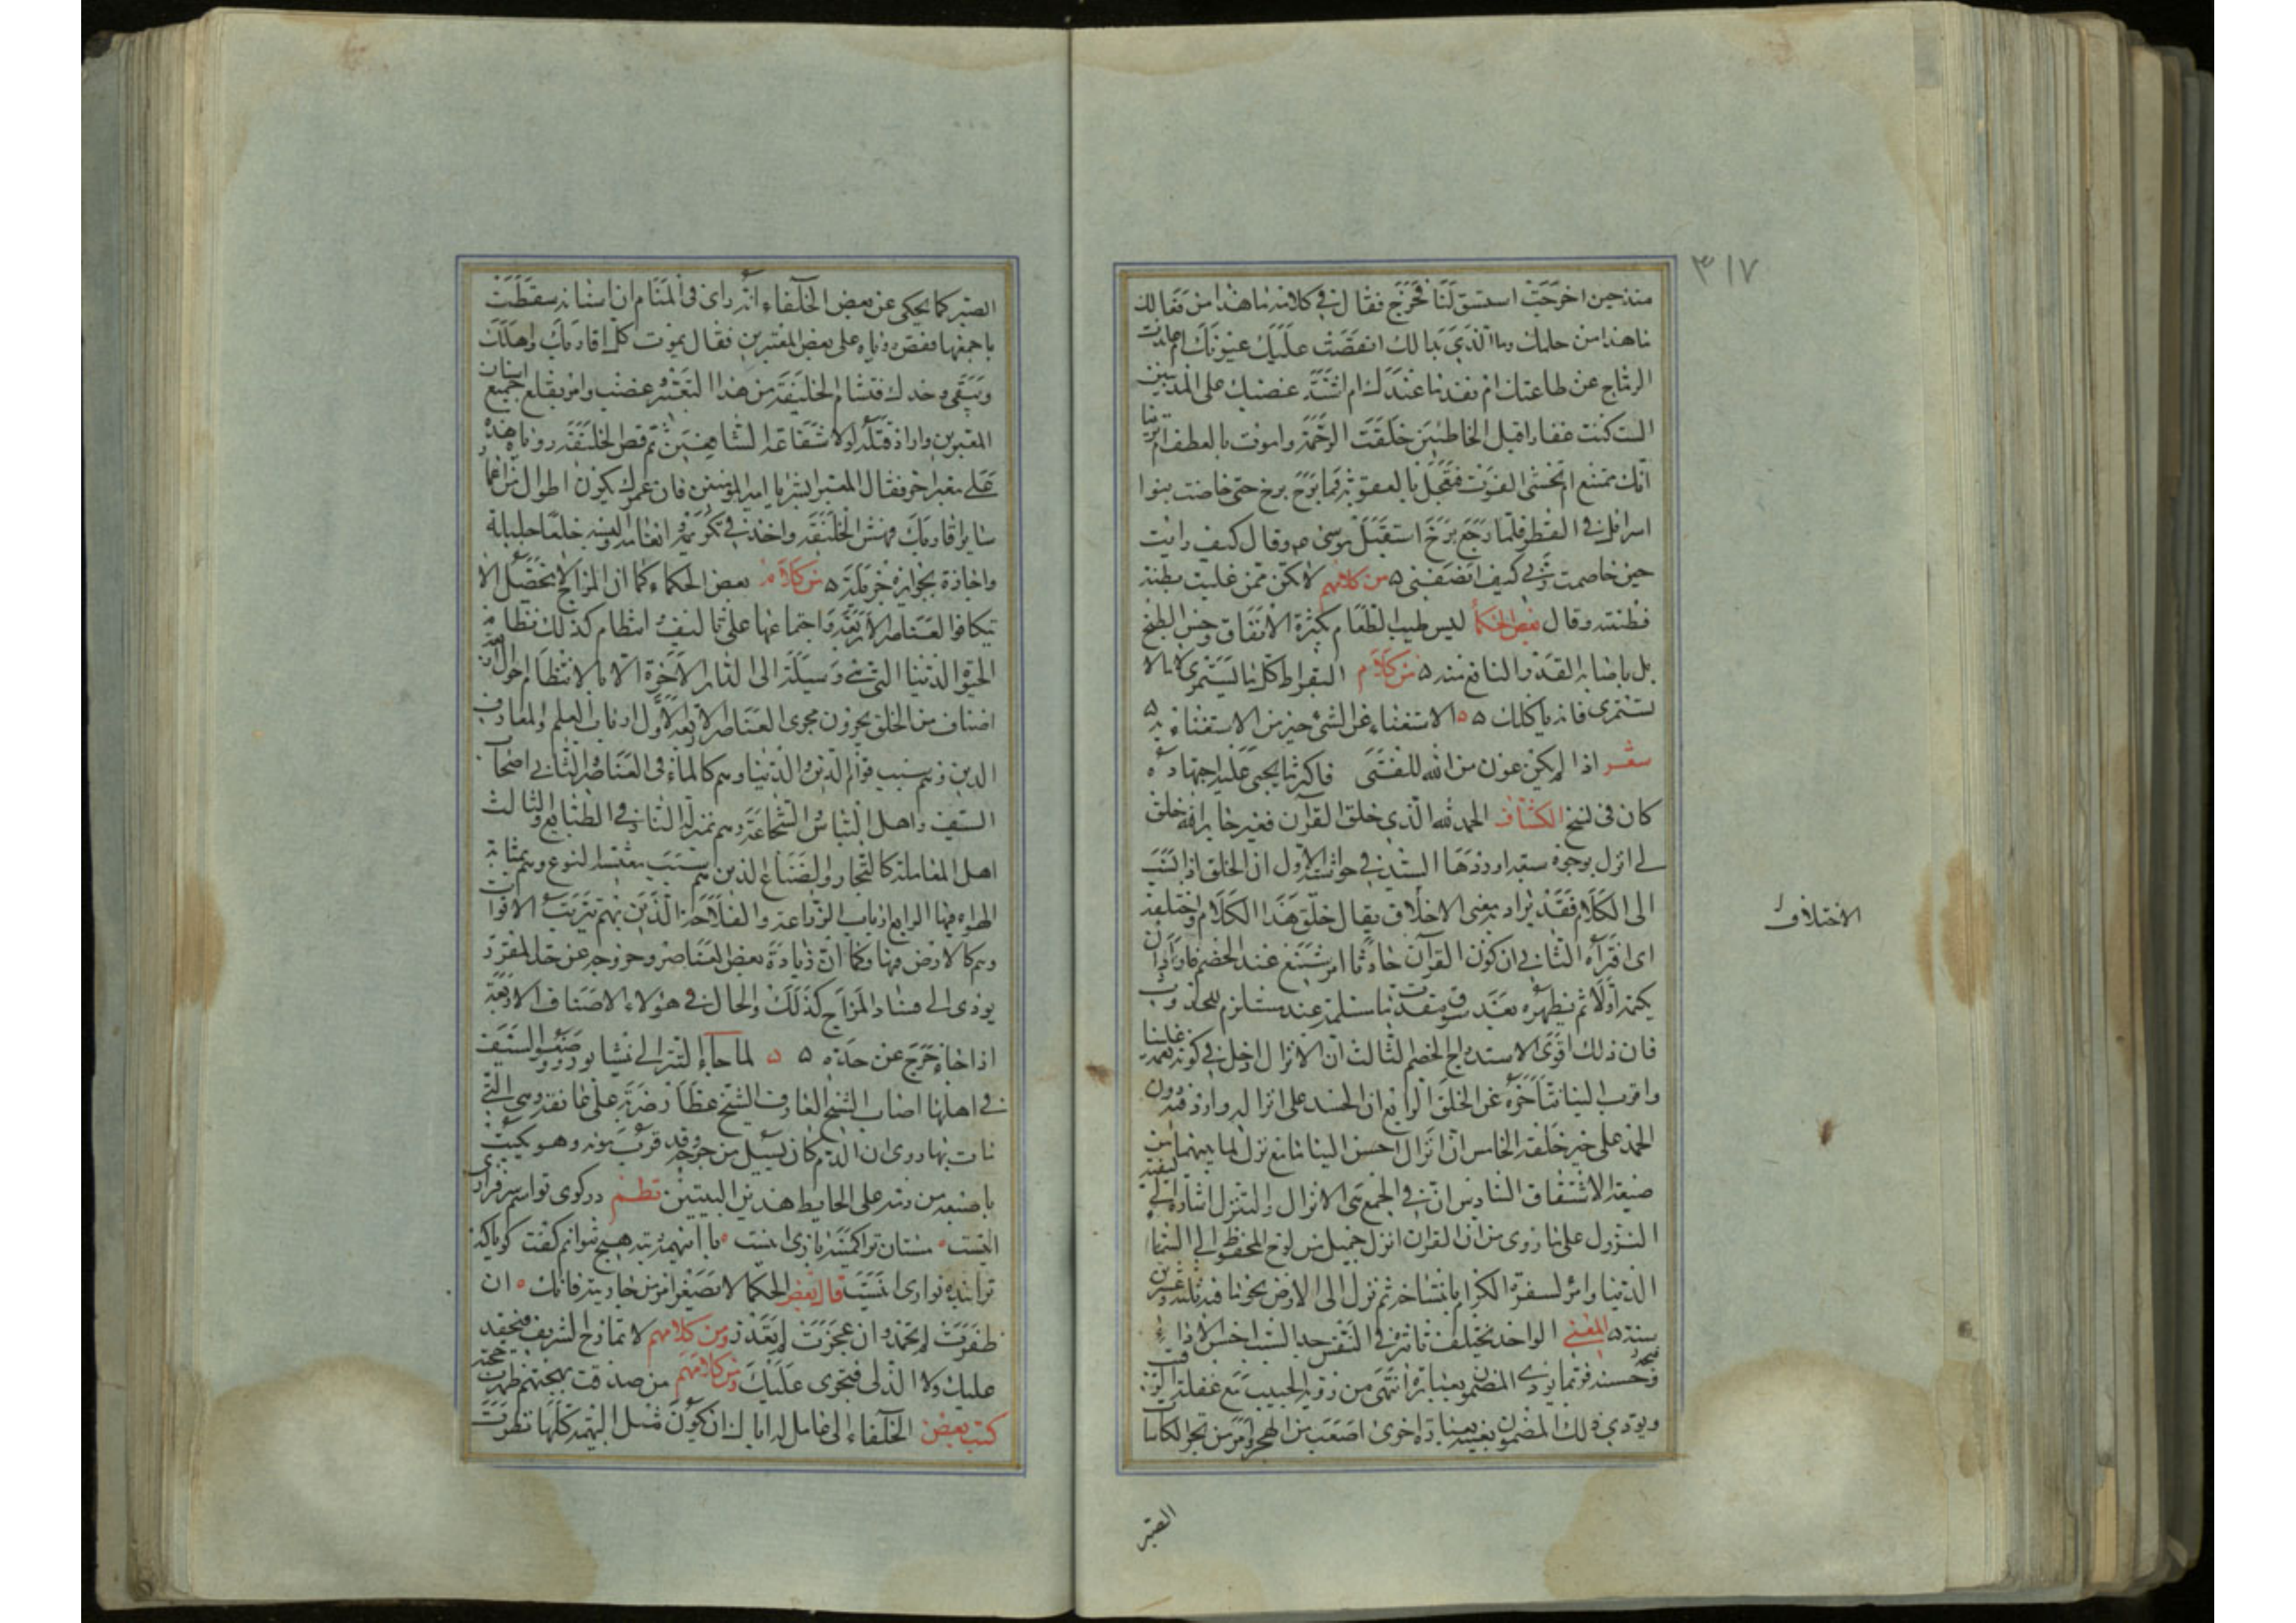 ٣١٧
منذ حين اخرجت استسق لنا فخرج فقال في كلامه ما هذا من فعالك
ما هذا من حلمك وما الذي بدا لك انقصت عليك عيونك ام عاندت
الرياح عن طاعتك ام نفد ما عندك ام اشتد غضبك على المذنبين
الست كنت غفارا قبل الخاطئين خلقت الرحمة وامرت بالعطف ام ترينا
انك ممتنع ام تخشى الفوت فتعجل بالعقوبة فما برح برخ حتى خاضت بنوا
اسرائيل في القطر فلما رجع برخ استقبل موسى ع م وقال كيف رايت
حين خاصمت ربي كيف انصفني ٥ من كلامهم لا تكن ممن غلبت بطنته
فطنته وقال بعض الحكما ليس طيب الطعام بكثرة الانفاق وحسن الطبخ
بل باصابة القدر والنافع منه ٥ من كلام البقراط كل ما يستمرى كا مالا
تستمرى فانه ياكلك ٥ ٥ الاستغناء عن الشئ خير من الاستغناء به ٥
شعر اذا لم يكن عون من الله للفتى فاكثر ما يجبى عليه اجتهاده
كان في نسخ الكشاف الحمد لله الذي خلق القرآن فغير جار الله خلق
لى انزل بوجوه ستة اوردها السيد في حواشيه الاول ان الخلق اذا نسب
الى الكلام فقد يراد به معنى الاختلاق يقال خلق هذا الكلام واختلقه
الاختلاف
اى افتراه الثاني ان كون القرآن حادثا امر شنيع عند الخصم فاراد ان
يكتمه اولا ثم يظهره بعد سوق مقدمات مسلمة عنده مستلزم للحدوث
فان ذلك اقوى لاستدراج الخصم الثالث ان الانزال ادخل في كونه نعمة علينا
واقرب الينا لتاخره عن الخلق الرابع ان الحمد على انزاله وارد فيه دون
الحمد على خير خلقه الخامس ان انزال احسن التيامًا مع نزل لما بينهما من
صنعة الاشتقاق السادس ان في الجمع بين الانزال والتنزل اشارة الى كيفية
النزول على ما روى من ان القرآن انزل جميل من لوح المحفوظ الى السما
الدنيا وامر السفرة الكرام بانتساخه ثم نزل الى الارض نجوما في ثلثة وعشرين
سنة ٥ المعنى الواحد يختلف تاثره في النفس بحسب اختلاف
ويودي ذلك المضمون بعينه بعبارة اخرى اصعب من الهجر وامر من تجرع الكاسات
الصبر
الصبر كما يحكى عن بعض الخلفاء انه راى في المنام ان اسنانه سقطت
باجمعها فقص روياه على بعض المعبرين فقال يموت كل اقاربك واهلك
وتبقى وحدك فتشام الخليفة من هذا التعبير غضب وامر بقلع جميع اسنان
المعبرين واراد قتله لولا شفاعة الشافعين ثم قص الخليفة روياه هذه
على معبر اخر فقال المعبر ابشر يا امير المؤمنين فان عمرك يكون اطول من اعمار
ساير اقاربك فهش الخليفة واخذ في تكريمه وانعامه والبسه خلعا جليلة
واجازة بجوايز جزيلة ٥ من كلام بعض الحكماء كما ان المزاج لا يحصل الا
بتكافوا العناصر الاربعة واجتماعها على تاليف وانتظام كذلك نظام
الحيوة الدنيا التي هي وسيلة الى الدار الآخرة الا بالانتظام احوال اربعة
اصناف من الخلق يجرون مجرى العناصر الاربعة الاول ارباب العلم والمعارف
الذين هم سبب قوام الدين والدنيا وهم كالماء في العناصر والثاني اصحاب
السيف واهل الباس والشجاعة وهم بمنزلة النار في الطبايع والثالث
اهل المعاملة كالتجار والصناع الذين هم بسبب معيشة النوع وهم بمثابة
الهواء فيها الرابع ارباب الزراعة والفلاحة الذين بهم يترتب الاقوات
وهم كالارض فيها وكما ان زيادة بعض العناصر وخروجه عن حد المقرر
يودى الى فساد المزاج كذلك والحال في هؤلاء الاصناف الاربعة
اذا جاز خرج عن حده ٥ ٥ لما جاء التتر الى نشابور ووضعوا السيف
في اهلها اصاب الشيخ العارف الشيخ عطار ضربة على عاتقه وهي التي
مات بها روى ان الدم كان يسيل من جرحه وقد قرب موته وهو يكتب
باصبعه من دمه على الحايط هذين البيتين نظم در كوى تو اسم سرفرازى
اينست مستان ترا كمينه بازى اينست با اينهمه رتبه هيچ نتوانم گفت گويا كه
ترا بنده نوازى اينست قال بعض الحكما لا تصغر امر من حاربته فانك ان
ظفرت لم تحمد وان عجزت لم تعذر ومن كلامهم لا تمازح الشريف فيحقد
عليك ولا الدنى فيجرى عليك ومن كلامهم من صدقت لهجته ظهرت حجته
كتب بعض الخلفاء الى عامل له اياك ان يكون مثل البهيمة كلها نظرت